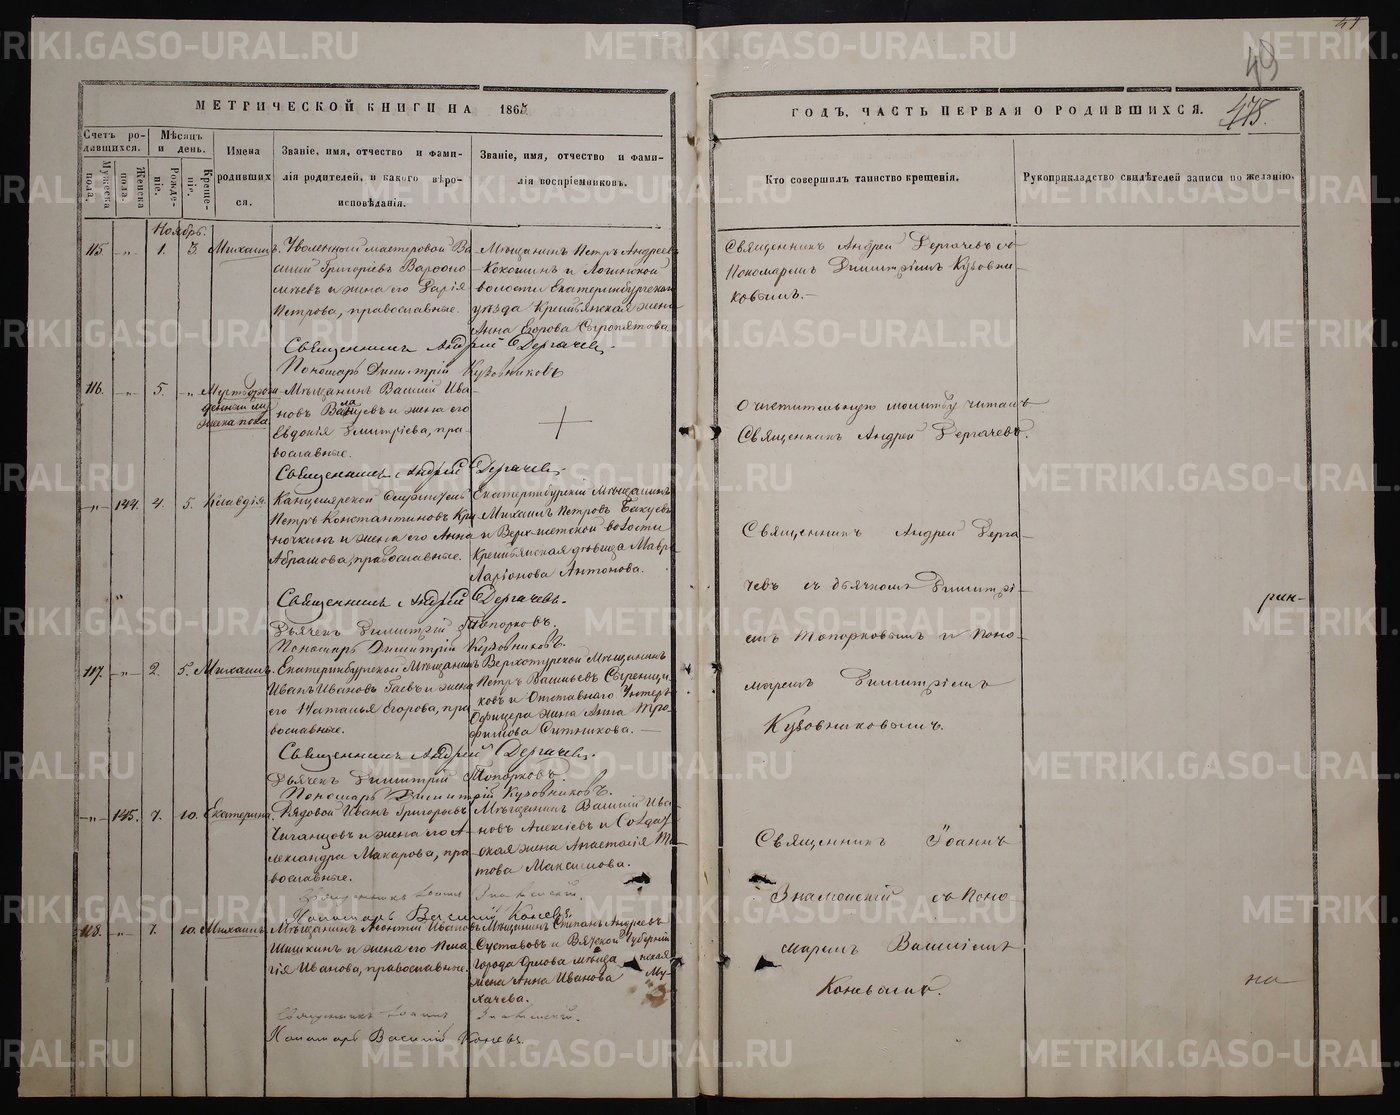 49
478.
МЕТРИЧЕСКОЙ КНИГИ НА 1865
ГОДЪ, ЧАСТЬ ПЕРВАЯ О РОДИВШИХСЯ.
Счетъ ро-
дившихся.
Мужеска
пола.
Женска
пола.
Мѣсяцъ
и день.
Рожде-
ніе.
Креще-
ніе.
Имена
родивших
ся.
Званіе, имя, отчество и фами-
лія родителей, и какого вѣро-
исповѣданія.
Званіе, имя, отчество и фами-
лія воспріемниковъ.
Кто совершилъ таинство крещенія.
Рукоприкладство свидѣтелей записи по желанію.
Ноябрь.
115. -„- 1. 3. Михаилъ.
Уволенный мастеровой Ва-
силий Григоріевъ Варѳоло-
мѣевъ и жена его Дарія
Петрова, православные.
Мѣщанинъ Петръ Андреев
Кокошинъ и
волости Екатеринбургскаго
уѣзда Крестьянская жена
Анна Егорова Сыропятова.
Священникъ Андрей Дергачевъ съ
Пономаремъ Димитріемъ Кузовни-
ковымъ.-
Священникъ Андрей Дергачевъ.
Пономарь Димитрій Кузовниковъ
116. -„- 5. „-
Мертворож
денный му
жеска пола
Мѣщанинъ Василій Ива-
новъ и жена его
Евдокія Димитріева, пра-
вославные.
Очистительную молитву читалъ
Священникъ Андрей Дергачевъ.
Священникъ Андрей Дергачевъ.
-„- 144. 4. 5. Клавдія.
Канцелярской Служитель
Петръ Константиновъ Кри-
ночкинъ и жена его Анна
Абрамова, православные.
Екатеринбургскій Мѣщанинъ
Михаилъ Петровъ Бакуевъ
и Верх-исетской волости
Крестьянская дѣвица Мавра
Ларіонова Антонова.
Священникъ Андрей Дерга-
чевъ съ дьячкомъ Димитрі-
емъ Топорковымъ и Поно-
маремъ Димитріемъ
Кузовниковымъ.
Священникъ Андрей Дергачевъ.
Дьячекъ Димитрій Топорковъ.
Пономарь Димитрій Кузовниковъ.
117. -„- 2. 5. Михаилъ.
Екатеринбургской Мѣщанинъ
Иванъ Ивановъ Гаевъ и жена
его Наталья Егорова, пра-
вославные.
Верхотурской Мѣщанинъ
Петръ Васильевъ Сыренщи-
ковъ и Отставнаго Унтеръ
Офицера жена Анна Тро-
фимова Ситникова.
Священникъ Андрей Дергачевъ.
Дьячекъ Димитрій Топорковъ.
Пономарь Димитрій Кузовниковъ.
-„- 145. 7. 10. Екатерина.
Рядовой Иванъ Григорьевъ
Чиганцовъ и жена его А-
лександра Макарова, пра-
вославные.
Мѣщанинъ Василій Ива-
новъ Алексѣевъ и Солдат-
ская жена Анастасія Ти-
това Максимова.
Священникъ Іоаннъ
Знаменскій съ Поно-
маремъ Василіемъ
Коневымъ.
Священникъ Іоаннъ Знаменскій.
Пономарь Василій Коневъ.
118. -„- 7. 10. Михаилъ.
Мѣщанинъ Леонтій Ивановъ
Шишкинъ и жена его Пела-
гія Иванова, православные.
Мѣщанинъ Степанъ Андреевъ
Суставовъ и Вятской Губерніи
Города Орлова мѣща нская
жена Анна Иванова Му-
хачева.
Священникъ Іоаннъ Знаменскій.
Пономарь Василій Коневъ.
рин-
на
METRIKI.GASO-URAL.RU